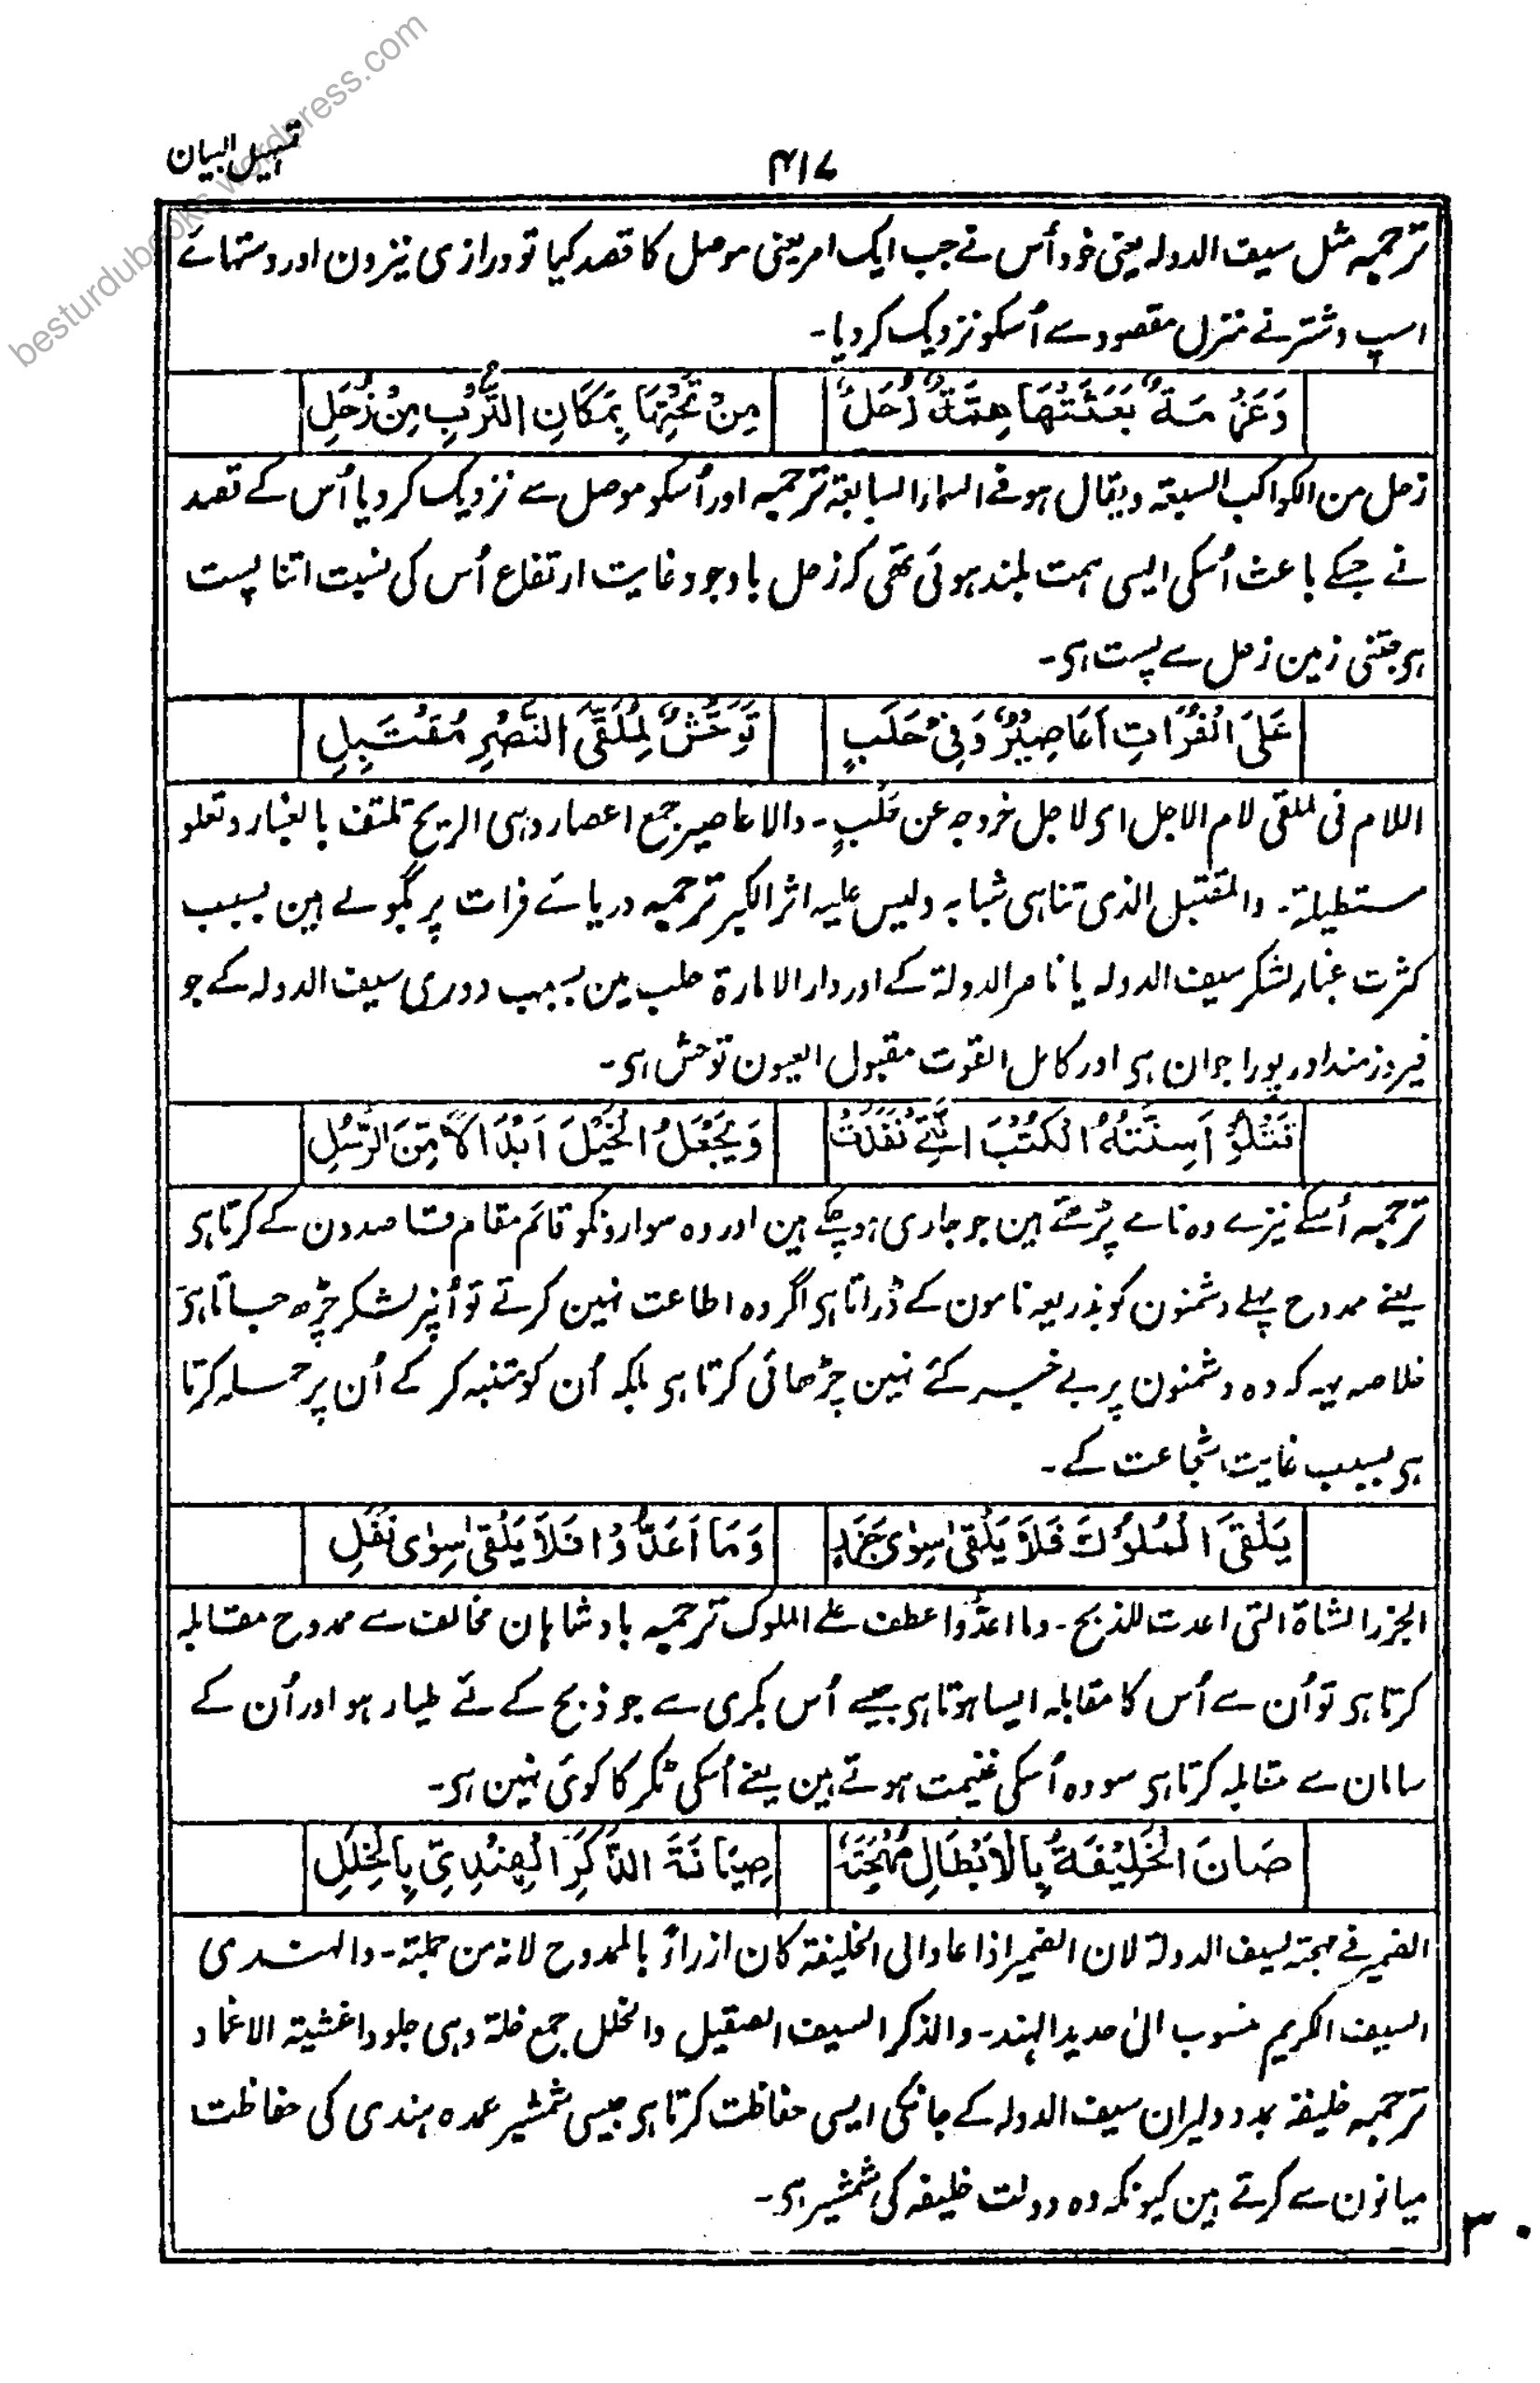 besturdubooks.wordpress.com
تسہیل البیان
۴۱۷
ترجمہ مثل سیف الدولہ یعنی خود اُس نے جب ایک امر یعنی موصل کا قصد کیا تو درازی نیزون اور دستہائے
اسپ و شتر نے منزل مقصود سے اُسکو نزدیک کر دیا۔
وَعَزْمَةٌ بَعَثَتْهَا هِمَّةٌ زُحَلُ
مِنْ تَحْتِهَا بِمَكَانِ التُّرْبِ مِنْ زُحَلِ
زحل من الکواکب السبعۃ ویقال ہو فے السماء السابعۃ ترجمہ اور اُسکو موصل سے نزدیک کر دیا اُس کے قصد
نے جسکے باعث اُسکی ایسی ہمت بلند ہوئی تھی کہ زحل باوجود غایت ارتفاع اُس کی نسبت اتنا پست
ہی جتنی زمین زحل سے پست ہی۔
عَلَى الْفُرَاتِ اَعَاصِيْرٌ وَفِيْ حَلَبٍ
تَوَحُّشٌ لِمُلَقَّى النَّصْرِ مُقْتَبِلِ
اللام فی لملقی لام الاجل ای لاجل خروجہ عن حلبٍ۔ والاعاصیر جمع اعصار وہی الریح تلتف بالغبار وتعلو
مستطیلۃ۔ والمقتبل الذی تناہی شبابہ ولیس علیہ اثر الکبر ترجمہ دریائے فرات پر بگولے ہین بسبب
کثرت غبار لشکر سیف الدولہ یا ناصر الدولۃ کے اور دار الامارۃ حلب مین بسبب دوری سیف الدولہ کے جو
فیروزمند اور پورا جوان ہی اور کامل القوت مقبول العیون توحش ہی۔
تَتْلُوْ اَسِنَّتُهُ الْكُتُبَ الَّتِيْ نَفَذَتْ
وَيَجْعَلُ الْخَيْلَ اَبْدَالًا مِّنَ الرُّسُلِ
ترجمہ اُسکے نیزے وہ نامے پڑھتے ہین جو جاری ہوچکے ہین اور وہ سوارونکو قائم مقام قاصدون کے کرتا ہی
یعنے ممدوح پہلے دشمنون کو بذریعہ نامون کے ڈراتا ہی اگر وہ اطاعت نہین کرتے تو اُنپر لشکر چڑھ جاتا ہی
خلاصہ یہ کہ وہ دشمنون پر بے خبر کئے نہین چڑھائی کرتا ہی بلکہ اُن کو متنبہ کر کے اُن پر حملہ کرتا
ہی بسبب غایت شجاعت کے۔
يَلْقَى الْمُلُوْكَ فَلَا يَلْقٰى سِوٰى جَزَرٍ
وَمَا اَعَدُّوْا فَلَا يَلْقٰى سِوٰى نَفَلِ
الجزر الشاۃ التی اعدت للذبح۔ وما اعدُّوا عطف علے الملوک ترجمہ بادشاہان مخالف سے ممدوح مقابلہ
کرتا ہی تو اُن سے اُس کا مقابلہ ایسا ہوتا ہی جیسے اُس بکری سے جو ذبح کے لئے طیار ہو اور اُن کے
سامان سے مقابلہ کرتا ہی سو وہ اُسکی غنیمت ہوتے ہین یعنے اُسکی ٹکر کا کوئی نہین ہی۔
صَانَ الْخَلِيْفَةُ بِالْاَبْطَالِ مُهْجَتَهٗ
صِيَانَةَ الذَّكَرِ الْهِنْدِيِّ بِالْخِلَلِ
الضمیر فے مہجتہ لسیف الدولۃ لان الضمیر اذا عاد الی الخلیفۃ کان ازراءً بالممدوح لانہ من جملتہ۔ والہندی
السیف الکریم منسوب الیٰ حدید الہند۔ والذکر السیف الصقیل والخلل جمع خلۃ وہی جلود اغشیۃ الاغماد
ترجمہ خلیفہ بمدد دلیران سیف الدولہ کے جانکی ایسی حفاظت کرتا ہی جیسی شمشیر عمدہ ہندی کی حفاظت
میانون سے کرتے ہین کیونکہ وہ دولت خلیفہ کی شمشیر ہی۔
۳۰